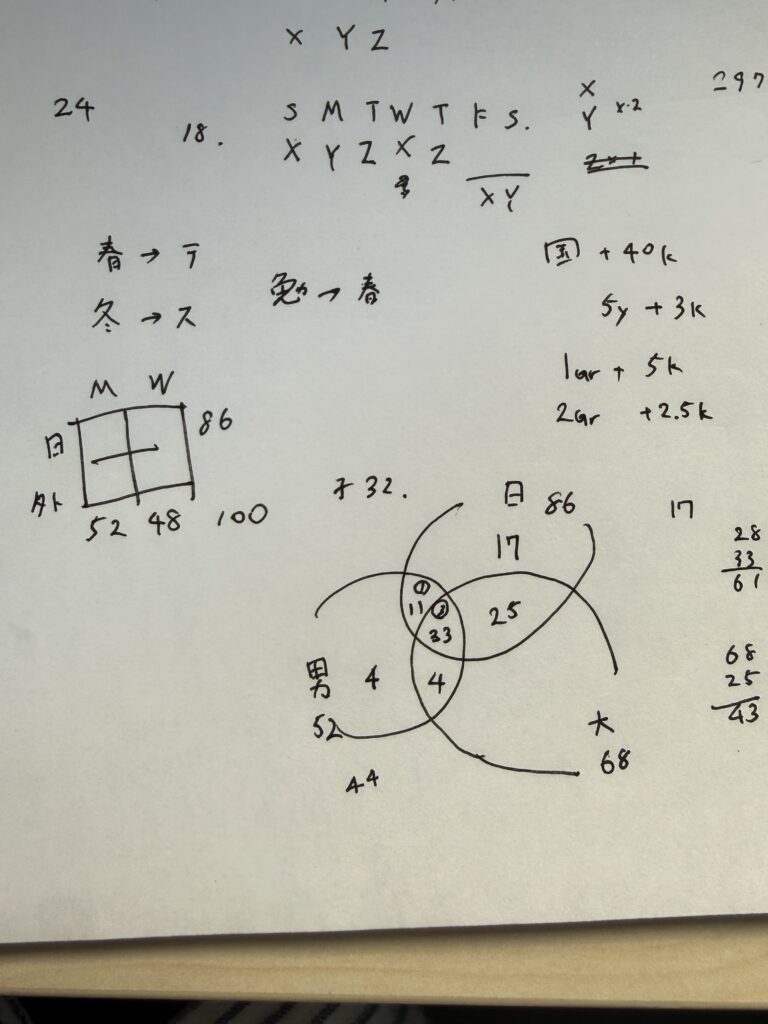 X Y Z
24
297
18.
S M T W T F S.
X Y Z X Z
X Y
X
Y x-2
春 → テ
冬 → ス
勉 → 春
国 + 40k
5y + 3k
1gr + 5k
2gr + 2.5k
M W
日 86
外
52 48 100
オ 32.
日 86
17
① 11
② 33
25
男 52
4
4
大 68
44
17
28
33
61
68
25
43